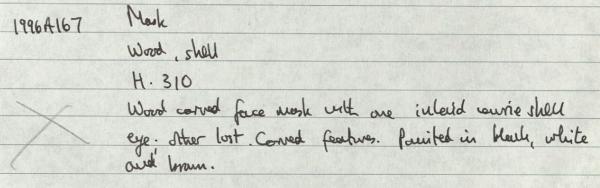 1996A167 Mask
Wood, shell
H. 310
Wood carved face mask with one inlaid cowrie shell
eye. Other lost. Carved features. Painted in black, white
and brown.